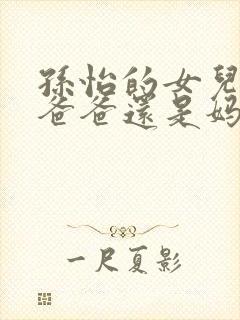 孫怡的女兒
爸爸還是媽
一尺夏影